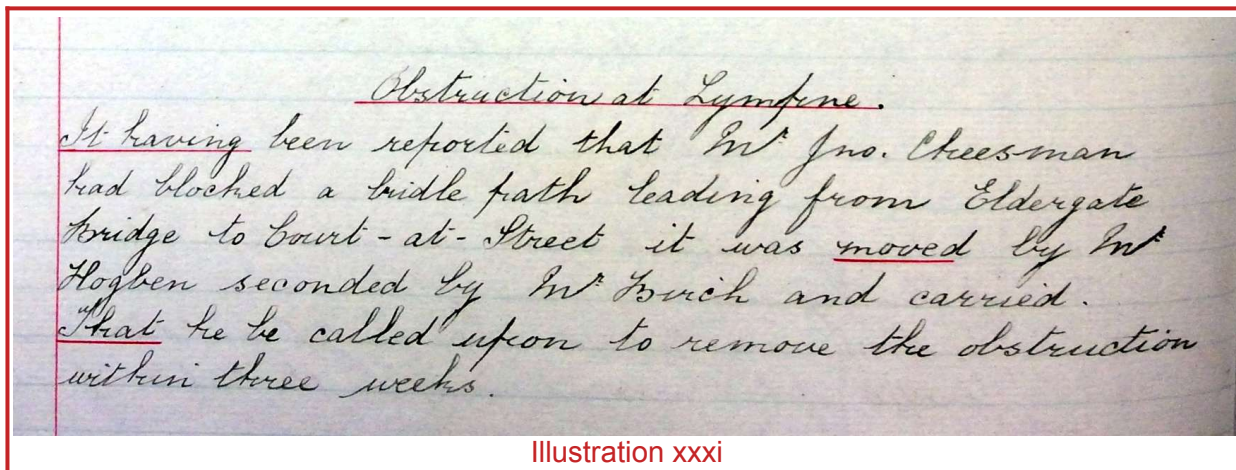 Obstruction at Lympne.
It having been reported that Mr Jno. Cheesman
had blocked a bridle path leading from Eldergate
Bridge to Court-at-Street it was moved by Mr
Hogben seconded by Mr Birch and carried.
That he be called upon to remove the obstruction
within three weeks.
Illustration xxxi